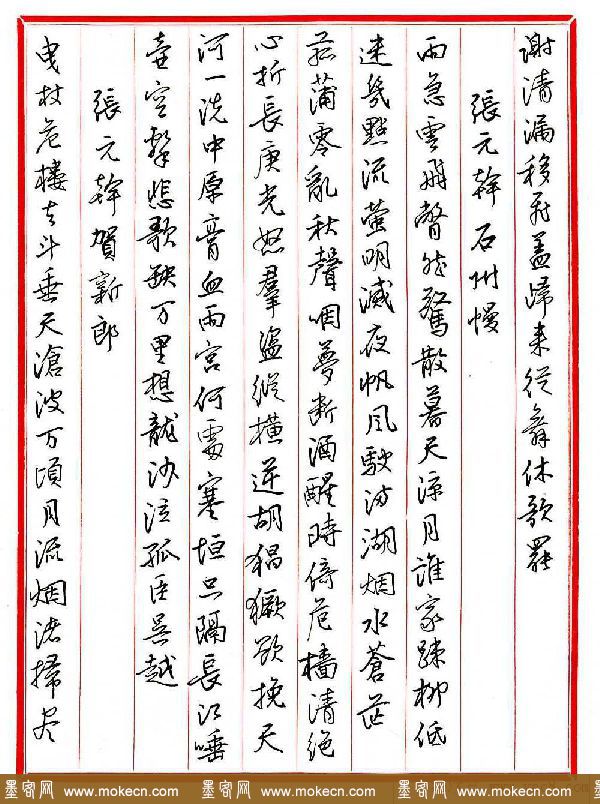 謝清漏移飛蓋歸来從舞休歌罷
張元幹石州慢
雨急雲飛瞥然驚散暮天涼月誰家疎柳低
迷幾點流螢明滅夜帆風駛滿湖烟水蒼茫
菰蒲零亂秋聲咽夢断酒醒時倚危檣清絕
心折長庚光怒羣盜縱橫逆胡猖獗欲挽天
河一洗中原膏血兩宮何處塞垣只隔長江唾
壺空擊悲歌缺万里想龍沙泣孤臣吳越
張元幹賀新郎
曳杖危樓去斗垂天滄波万頃月流烟渚掃尽
墨客网 www.mokecn.com 墨客网 www.mokecn.com 墨客网 www.mokecn.com